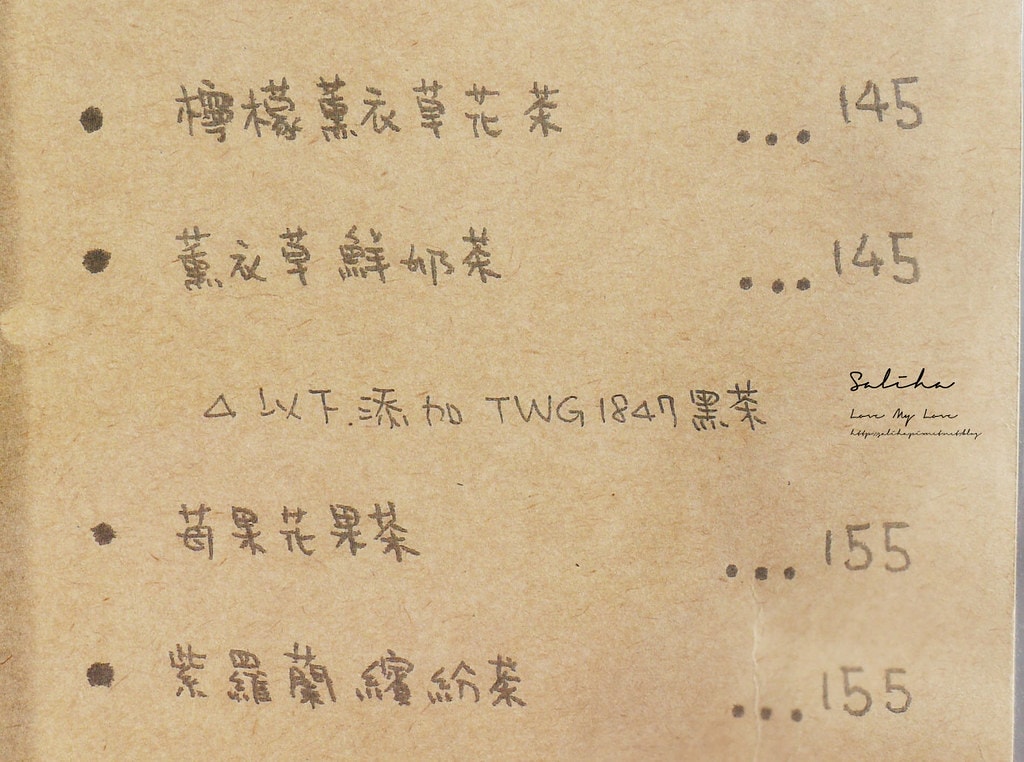 • 檸檬薰衣草花茶 ... 145
• 薰衣草鮮奶茶 ... 145
△ 以下添加 TWG 1847 黑茶
Saliha
Love My Love
• 莓果花果茶 ... 155
• 紫羅蘭繽紛茶 ... 155